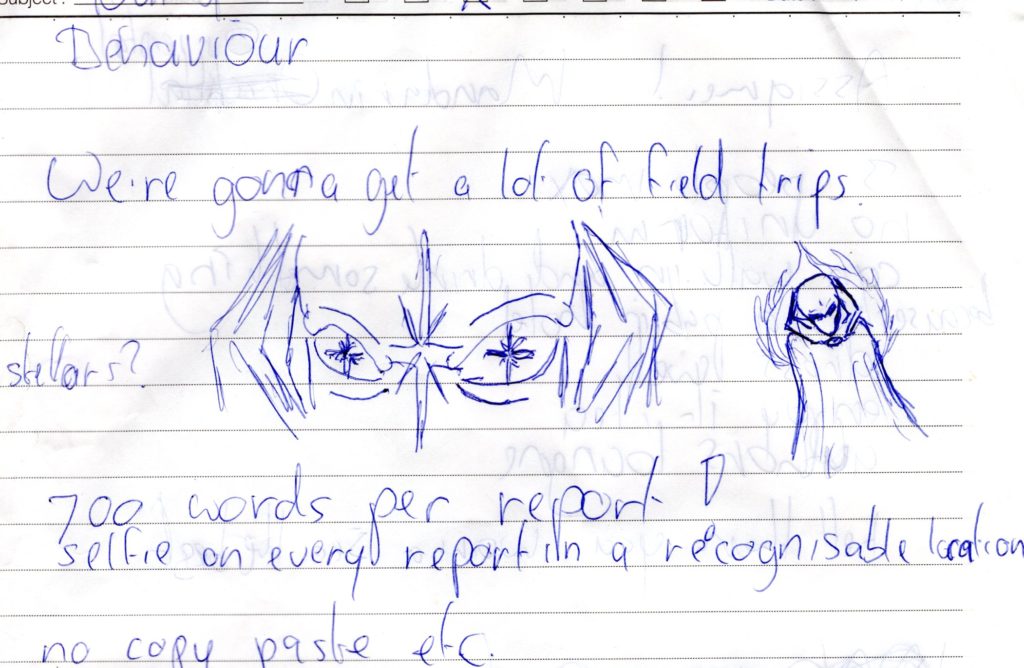 Subject :
Behaviour
We're gonna get a lot of field trips.
stellars?
700 words per report
selfie on every report in a recognisable location
no copy paste etc.